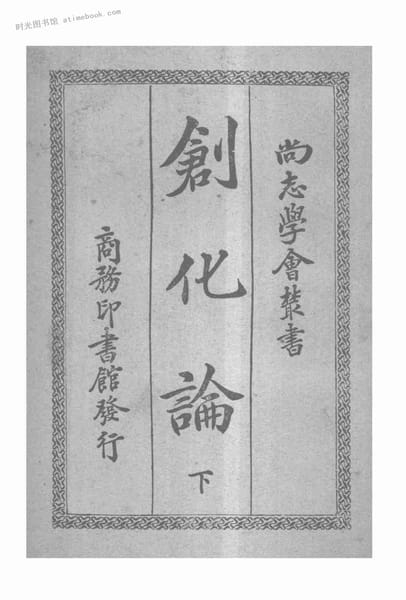 时光图书馆 atimebook.com
尚志學會叢書
創化論
下
商務印書館發行